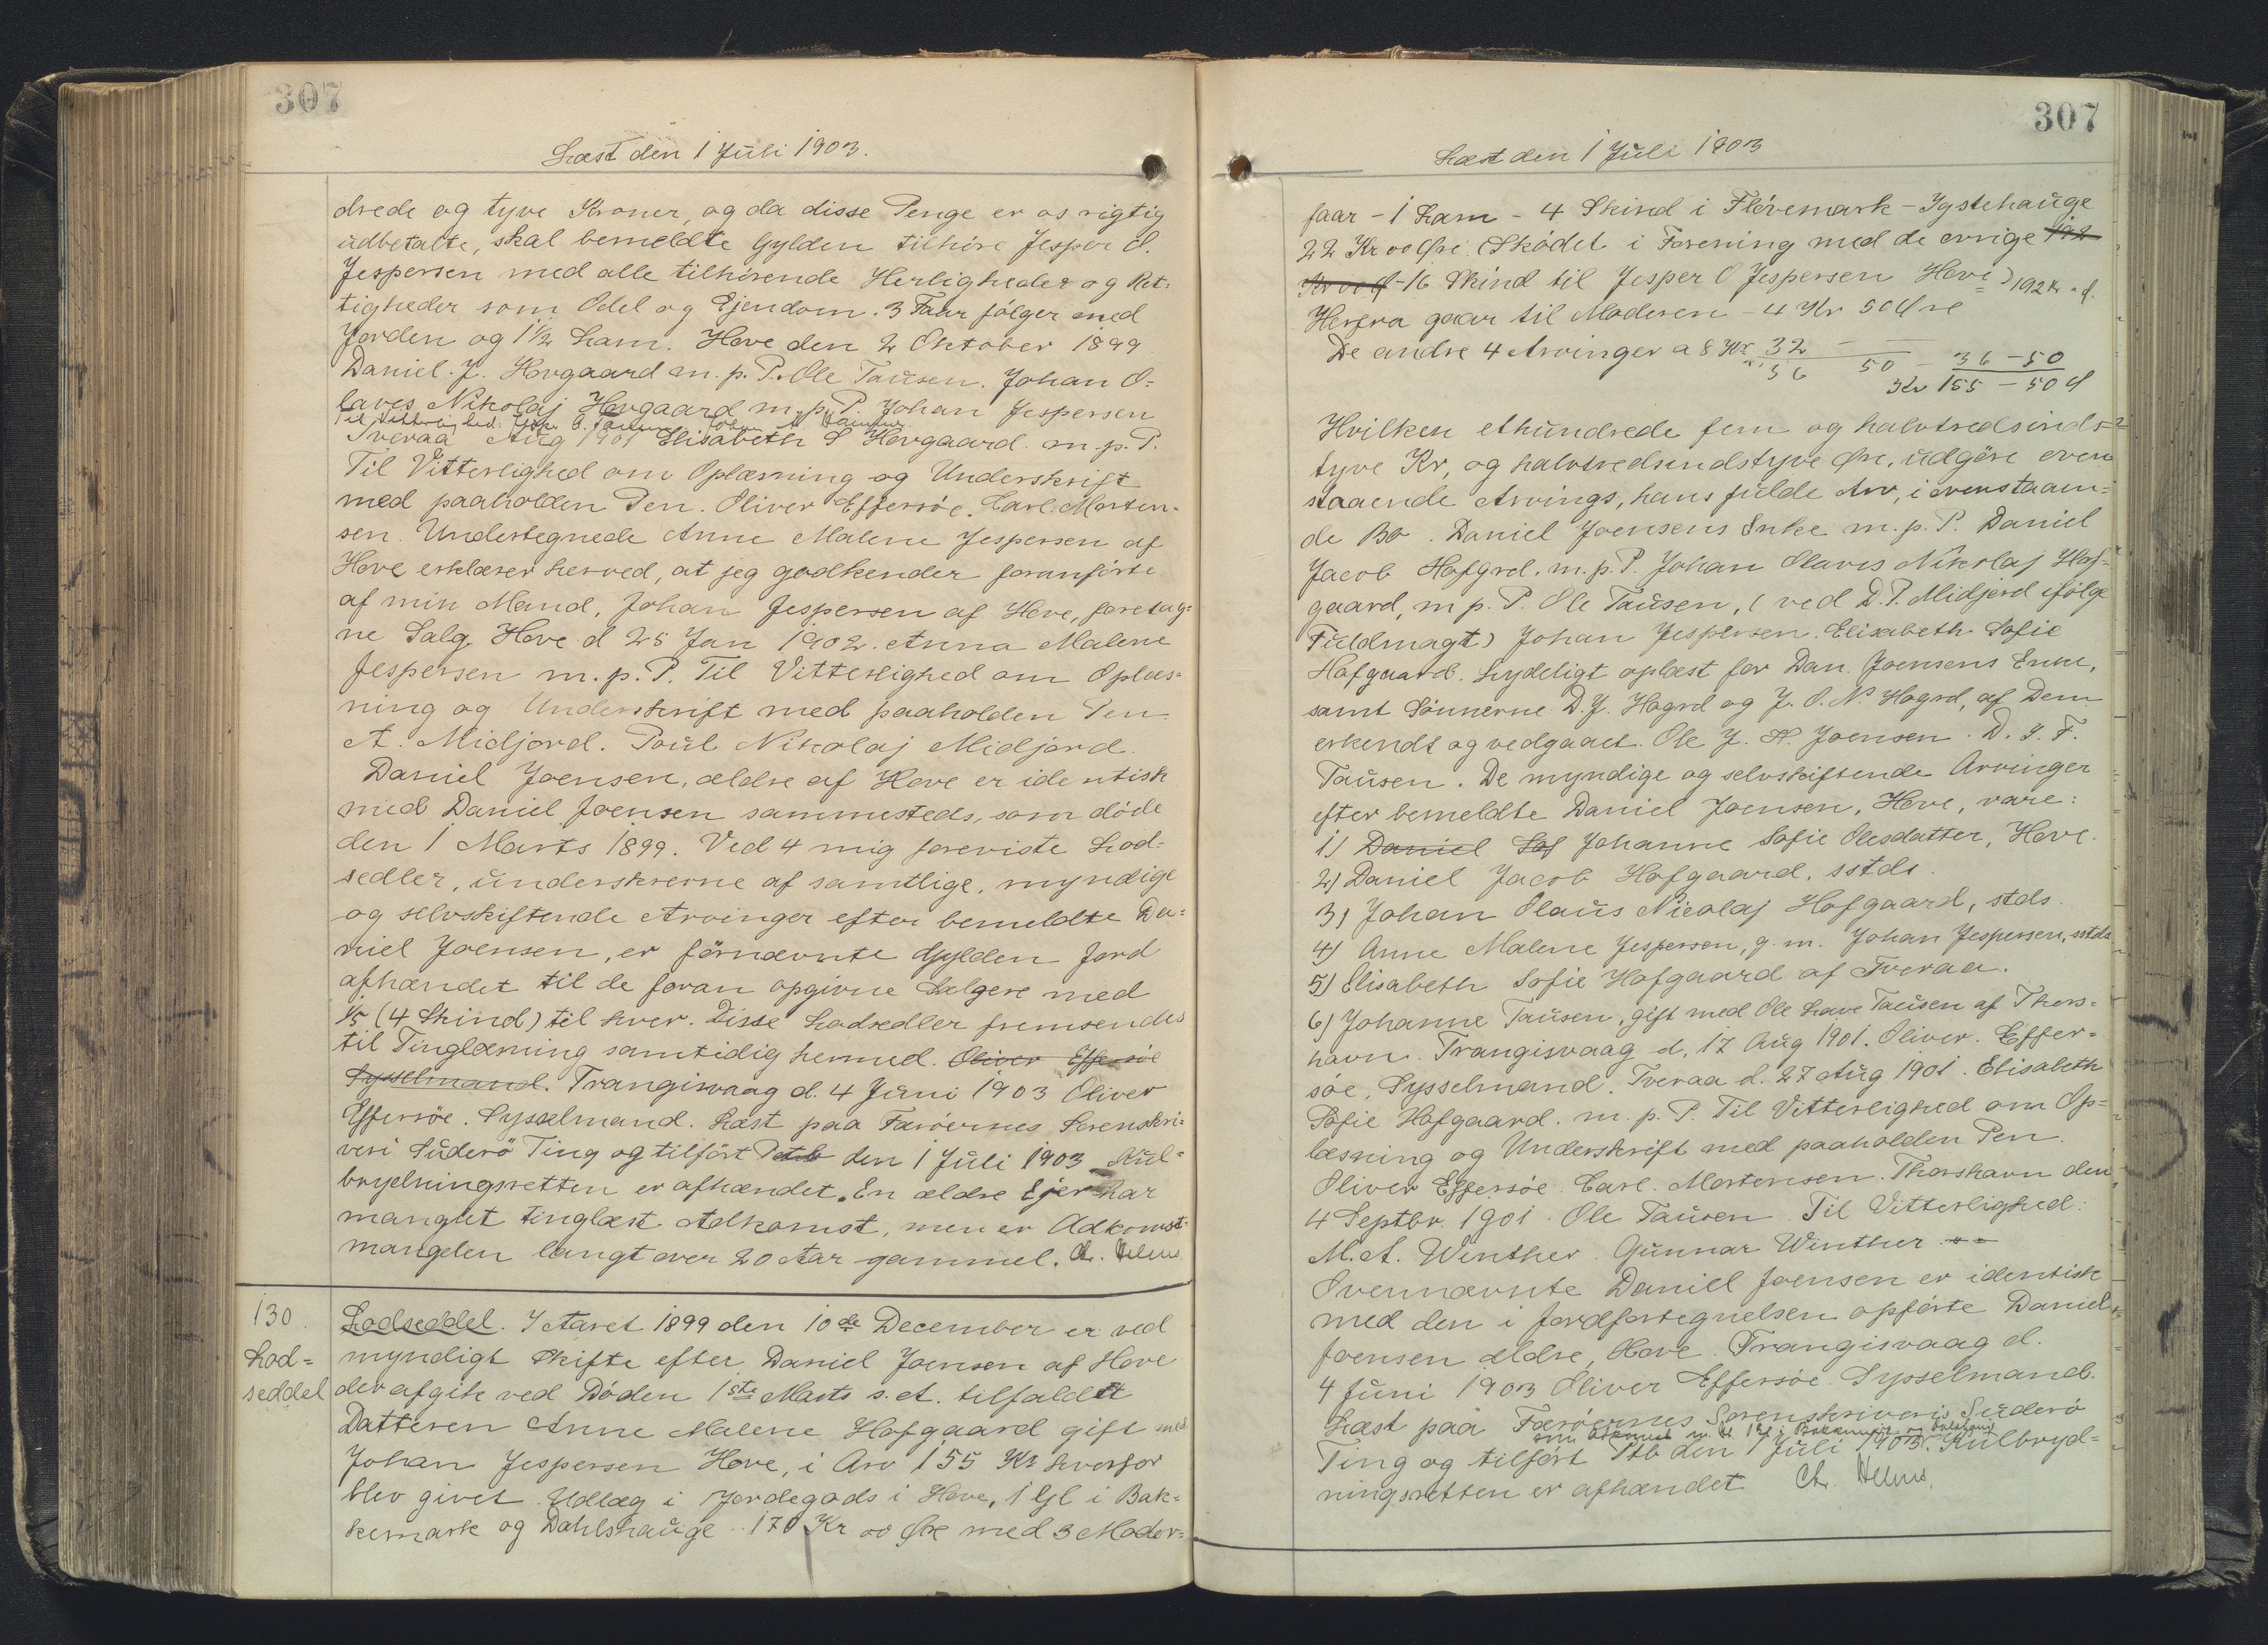 307
Læst den 1 Juli 1903.
drede og tyve Kroner, og da disse Penge er os rigtig
udbetalte, skal bemeldte Gylden tilhøre Jesper O.
Jespersen med alle tilhørende Herligheder og Ret-
tigheder som Odel og Ejendom. 3 Faar følger med
Jorden og 1 1/2 Lam. Hove den 2 Oktober 1899
Daniel. J. Hovgaard m. p. P. Ole Tausen. Johan O-
laves Nikolaj Hovgaard m. p. P. Johan Jespersen
Til Vitterlighed:
Tveraa Aug 1901 Elisabeth S Hovgaard. m. p. P.
Til Vitterlighed om Oplæsning og Underskrift
med paaholden Pen. Oliver Effersøe. Carl. Morten-
sen. Undertegnede Anne Malene Jespersen af
Hove erklærer herved, at jeg godkender foranførte
af min Mand, Johan Jespersen af Hove, foretag-
ne Salg. Hove d 25 Jan 1902. Anna Malene
Jespersen m. p. P. Til Vitterlighed om Oplæs-
ning og Underskrift med paaholden Pen
A. Midjord. Poul Nikolaj Midjord.
Daniel Joensen, ældre af Hove er identisk
med Daniel Joensen sammesteds, som døde
den 1 Marts 1899. Ved 4 mig foreviste Lod-
sedler, underskrevne af samtlige, myndige
og selvskiftende Arvinger efter bemeldte Da-
niel Joensen, er førnævnte Gylden Jord
afhændet til de foran opgivne Sælgere med
1/5 (4 Skind) til hver. Disse Lodsedler fremsendes
til Tinglæsning samtidig hermed. Oliver Effersøe
Sysselmand. Trangisvaag d. 4 Juni 1903 Oliver
Effersøe. Sysselmand. Læst paa Færøernes Sorenskri-
veri Suderö Ting og tilført Ptb den 1 Juli 1903 Kul-
brydningsretten er afhændet. En ældre Ejer har
manglet tinglæst Adkomst, men er Adkomst-
mangelen langt over 20 Aar gammel. Ch. Helms.
130.
Lod-
seddel
Lodseddel. I Aaret 1899 den 10de December er ved
myndigt Skifte efter Daniel Joensen af Hove
der afgik ved Døden 1ste Marts s. A. tilfaldet
Datteren Anne Malene Hofgaard gift med
Johan Jespersen Hove, i Arv 155 Kr hvorfor
blev givet Udlæg i Jordegods i Hove, 1 Gl i Bak-
kemark og Dahlshauge 170 Kr 00 Øre med 3 Moder-
307
Læst den 1 Juli 1903
faar - 1 Lam - 4 Skind i Flövemark - Ygstehauge
22 Kr 00 Øre (Skødet i Forening med de øvrige 192
Kr 00 Ø - 16 Skind til Jesper O Jespersen Hove) 192 Kr " Ø.
Herfra gaar til Moderen - 4 Kr 50 Øre
De andre 4 Arvinger a 8 Kr 32
36 50 - 36 - 50
Kr 155 - 50 Ø
Hvilken ethundrede fem og halvtredsinds-
tyve Kr, og halvtredsindstyve Øre, udgøre oven
staaende Arvings, hans fulde Arv, i ovenstaaen-
de Bo. Daniel Joensens Enke m. p. P. Daniel
Jacob Hofgrd. m. p. P. Johan Olaves Nikolaj Hof-
gaard, m p. P. Ole Tausen, (ved D. P. Midjord ifölge
Fuldmagt) Johan Jespersen. Elisabeth Sofie
Hofgaard. Lydeligt oplæst for Dan. Joensens Enke,
samt Sönnerne D. J. Hogrd og J. O. N. Hogrd, af Dem
erkendt og vedgaaet. Ole J. H. Joensen. D. J. F.
Tausen. De myndige og selvskiftende Arvinger
efter bemeldte Daniel Joensen, Hove, vare:
1) Daniel Sof Johanne Sofie Olesdatter, Hove.
2) Daniel Jacob Hofgaard, sstds.
3) Johan Olaus Nicolaj Hofgaard, stds.
4) Anne Malene Jespersen, g. m. Johan Jespersen, sstds
5) Elisabeth Sofie Hofgaard af Tveraa.
6) Johanne Tausen, gift med Ole Lave Tausen af Thors-
havn. Trangisvaag d. 17 Aug 1901. Oliver. Effer-
søe, Sysselmand. Tveraa d. 27 Aug 1901. Elisabeth
Sofie Hofgaard. m. p. P. Til Vitterlighed om Op-
læsning og Underskrift med paaholden Pen.
Oliver Effersöe. Carl. Mortensen. Thorshavn den
4 Septbr. 1901. Ole Tausen. Til Vitterlighed:
M. A. Winther. Gunnar Winther.
Ovennævnte Daniel Joensen er identisk
med den i Jordfortegnelsen opførte Daniel
Joensen ældre, Hove. Trangisvaag d.
4 Juni 1903 Oliver Effersøe Sysselmand.
Læst paa Færöernes Sorenskriveri Suderö
Ting og tilført Ptb den 1 Juli 1903. Kulbryd-
ningsretten er afhændet Ch. Helms.